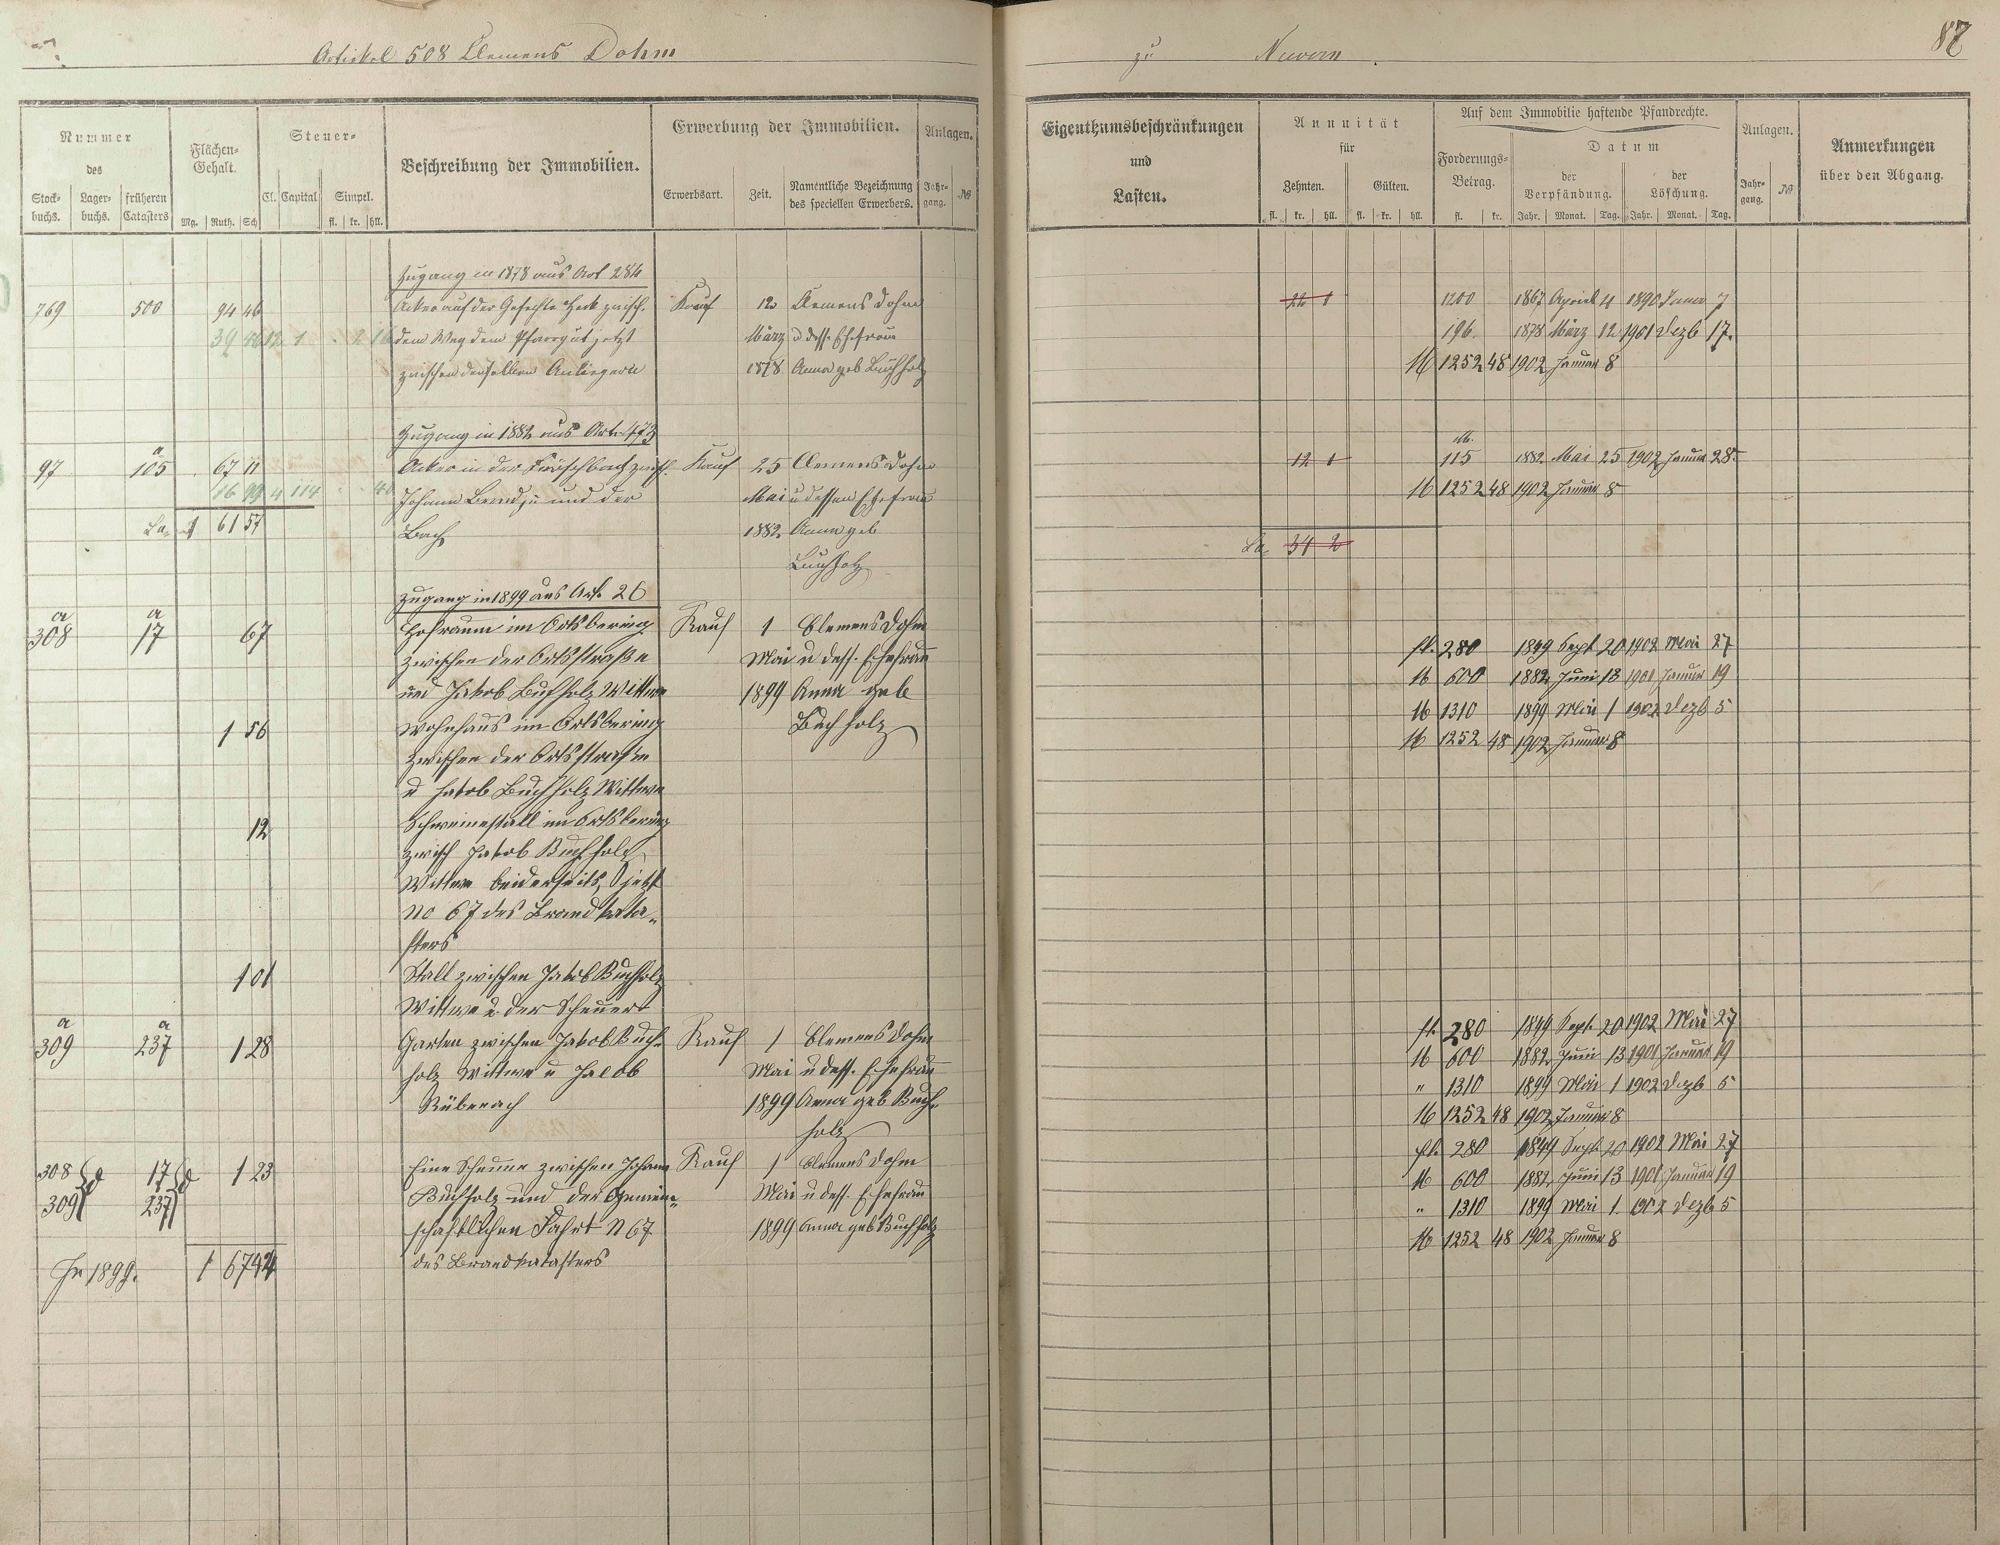 Artikel 508 Clemens Dohm
zu
87
Nummer
des
Stock-
buchs.
Lager-
buchs.
früheren
Catasters
Flächen-
Gehalt.
Mg. Ruth. Sch
Steuer-
Cl. Capital
Simpel.
fl. kr. hll.
Beschreibung der Immobilien.
Erwerbung der Immobilien.
Erwerbsart.
Zeit.
Namentliche Bezeichnung
des speciellen Erwerbers.
Anlagen.
Jahr-
gang.
№
Eigenthumsbeschränkungen
und
Lasten.
Annuität
für
Zehnten.
Gülten.
fl. kr. hll. fl. kr. hll.
Auf dem Immobilie haftende Pfandrechte.
Forderungs-
Betrag.
fl. kr.
Datum
der
Verpfändung.
der
Löschung.
Jahr. Monat. Tag. Jahr. Monat. Tag.
Anlagen.
Jahr-
gang.
№
Anmerkungen
über den Abgang.
Zugang in 1878 aus Art 284
769 500 94 46 Acker auf der Heck zwisch. Kauf 12 Clemens Dohm
39 46 12 1 2 16 dem Weg dem Pfarrgut jetzt März u dess. Ehefrau
zwischen denselben Anliegern 1878 Anna geb Buchholz
22 1 1200 1867 April 4 1890 Janr 7
196 1878 März 12 1901 Dezb 17.
M 1252 48 1902 Januar 8
Zugang in 1882 aus Art. 473
97 105 a 67 11 Acker in der zwisch. Kauf 25 Clemens Dohm
16 99 4 114 40 Johann und der Mai u dessen Ehefrau
La. 1 61 57 Bach 1882 Anna geb
Buchholz
12 1 M. 115 1882 Mai 25 1902 Januar 28
M 1252 48 1902 Januar 8
La 34 2
Zugang in 1899 aus Art. 26
a 308 a 17 67 Hofraum im Ortsbering Kauf 1 Clemens Dohm
zwischen der Ortsstraße Mai u dess. Ehefrau
und Jakob Buchholz Wittwe 1899 Anna geb
1 56 Wohnhaus im Ortsbering Buchholz
zwischen der Ortsstraße
u Jakob Buchholz Wittwe
12 Schweinestall im Ortsbering
zwisch Jakob Buchholz
Wittwe beiderseits, jetzt
No 67 des Brandkata-
sters
1 01 Stall zwischen Jakob Buchholz
Wittwe u. der Scheuer
fl. 280 1849 Sept 20 1902 Mai 27
M 600 1882 Juni 13 1901 Januar 19
M 1310 1899 Mai 1 1902 Dezb 5
M 1252 48 1902 Januar 8
a 309 a 237 1 28 Garten zwischen Jakob Buch- Kauf 1 Clemens Dohm
holz Wittwe u Jakob Mai u dess. Ehefrau
Rübenach 1899 Anna geb Buch-
holz
fl. 280 1849 Sept. 20 1902 Mai 27
M 600 1882 Juni 13 1901 Januar 19
" 1310 1899 Mai 1 1902 Dezb 5
M 1252 48 1902 Januar 8
308 17 1 23 Eine Scheune zwischen Johann Kauf 1 Clemens Dohm
309 237 Buchholz und der Gemein- Mai u dess. Ehefrau
schaftlichen Fahrt N 67 1899 Anna geb Buchholz
des Brandkatasters
fl. 280 1849 Sept 20 1902 Mai 27
M 600 1882 Juni 13 1901 Januar 19
" 1310 1899 Mai 1. 1902 Dezb 5
M 1252 48 1902 Januar 8
In 1899. 1 67 44